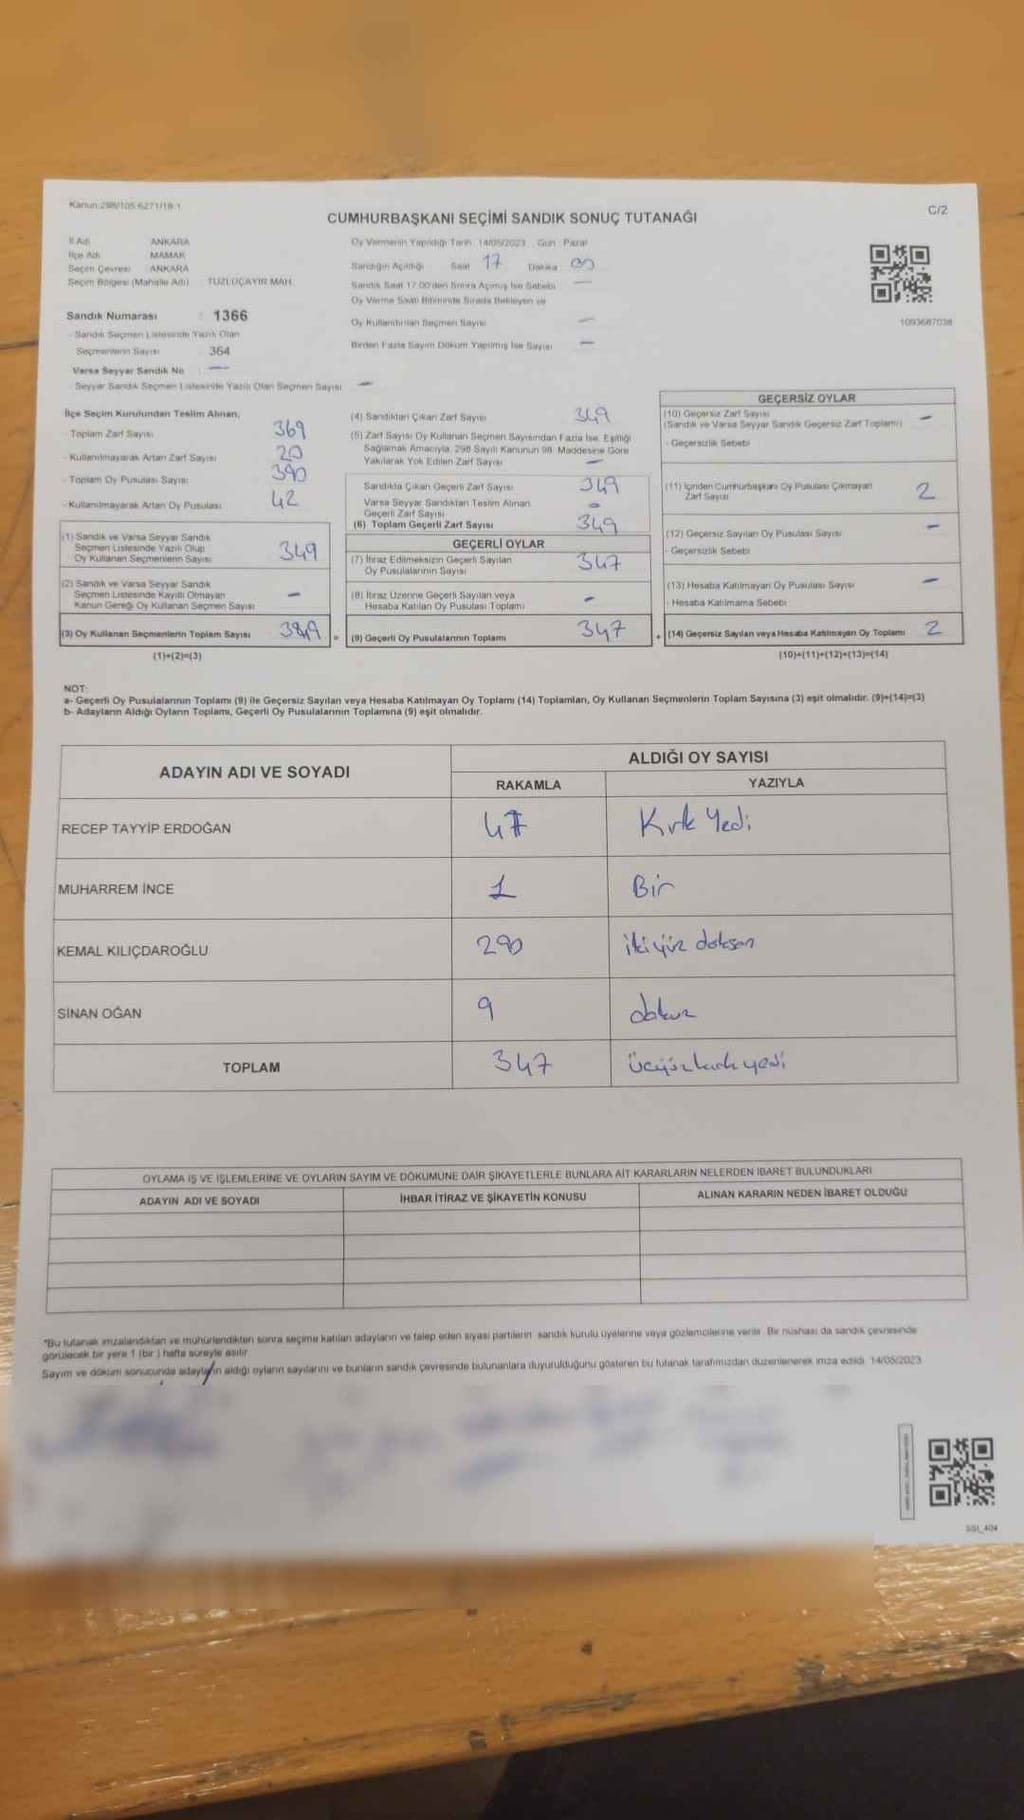 Kanun:298/105 6271/18-1
C/2
CUMHURBAŞKANI SEÇİMİ SANDIK SONUÇ TUTANAĞI
İl Adı ANKARA
İlçe Adı MAMAK
Seçim Çevresi ANKARA
Seçim Bölgesi (Mahalle Adı) TUZLUÇAYIR MAH.
Sandık Numarası : 1366
- Sandık Seçmen Listesinde Yazılı Olan
Seçmenlerin Sayısı 364
Varsa Seyyar Sandık No : —
- Seyyar Sandık Seçmen Listesinde Yazılı Olan Seçmen Sayısı —
Oy Vermenin Yapıldığı Tarih : 14/05/2023 Gün : Pazar
Sandığın Açıldığı Saat 17 Dakika
Sandık Saat 17:00'den Sonra Açılmış İse Sebebi —
Oy Verme Saati Bitiminde Sırada Bekleyen ve
Oy Kullandırılan Seçmen Sayısı —
Birden Fazla Sayım Döküm Yapılmış İse Sayısı —
1093687038
İlçe Seçim Kurulundan Teslim Alınan;
- Toplam Zarf Sayısı 369
- Kullanılmayarak Artan Zarf Sayısı 20
- Toplam Oy Pusulası Sayısı 390
- Kullanılmayarak Artan Oy Pusulası 42
(1) Sandık ve Varsa Seyyar Sandık
Seçmen Listesinde Yazılı Olup
Oy Kullanan Seçmenlerin Sayısı 349
(2) Sandık ve Varsa Seyyar Sandık
Seçmen Listesinde Kayıtlı Olmayan
Kanun Gereği Oy Kullanan Seçmen Sayısı —
(3) Oy Kullanan Seçmenlerin Toplam Sayısı 349 =
(1)+(2)=(3)
(4) Sandıktan Çıkan Zarf Sayısı 349
(5) Zarf Sayısı Oy Kullanan Seçmen Sayısından Fazla İse, Eşitliği
Sağlamak Amacıyla, 298 Sayılı Kanunun 98. Maddesine Göre
Yakılarak Yok Edilen Zarf Sayısı —
Sandıkta Çıkan Geçerli Zarf Sayısı 349
Varsa Seyyar Sandıktan Teslim Alınan
Geçerli Zarf Sayısı -
(6) Toplam Geçerli Zarf Sayısı 349
GEÇERLİ OYLAR
(7) İtiraz Edilmeksizin Geçerli Sayılan
Oy Pusulalarının Sayısı 347
(8) İtiraz Üzerine Geçerli Sayılan veya
Hesaba Katılan Oy Pusulası Toplamı -
(9) Geçerli Oy Pusulalarının Toplamı 347 +
GEÇERSİZ OYLAR
(10) Geçersiz Zarf Sayısı —
(Sandık ve Varsa Seyyar Sandık Geçersiz Zarf Toplamı)
- Geçersizlik Sebebi
(11) İçinden Cumhurbaşkanı Oy Pusulası Çıkmayan
Zarf Sayısı 2
(12) Geçersiz Sayılan Oy Pusulası Sayısı —
- Geçersizlik Sebebi
(13) Hesaba Katılmayan Oy Pusulası Sayısı —
- Hesaba Katılmama Sebebi
(14) Geçersiz Sayılan veya Hesaba Katılmayan Oy Toplamı 2
(10)+(11)+(12)+(13)=(14)
NOT:
a- Geçerli Oy Pusulalarının Toplamı (9) ile Geçersiz Sayılan veya Hesaba Katılmayan Oy Toplamı (14) Toplamları, Oy Kullanan Seçmenlerin Toplam Sayısına (3) eşit olmalıdır. (9)+(14)=(3)
b- Adayların Aldığı Oyların Toplamı, Geçerli Oy Pusulalarının Toplamına (9) eşit olmalıdır.
ADAYIN ADI VE SOYADI ALDIĞI OY SAYISI
RAKAMLA YAZIYLA
RECEP TAYYİP ERDOĞAN 47 Kırk Yedi
MUHARREM İNCE 1 Bir
KEMAL KILIÇDAROĞLU 290 ikiyüz doksan
SİNAN OĞAN 9 dokuz
TOPLAM 347 üçyüzkırk yedi
OYLAMA İŞ VE İŞLEMLERİNE VE OYLARIN SAYIM VE DÖKÜMÜNE DAİR ŞİKAYETLERLE BUNLARA AİT KARARLARIN NELERDEN İBARET BULUNDUKLARI
ADAYIN ADI VE SOYADI İHBAR İTİRAZ VE ŞİKAYETİN KONUSU ALINAN KARARIN NEDEN İBARET OLDUĞU
*Bu tutanak imzalandıktan ve mühürlendikten sonra seçime katılan adayların ve talep eden siyasi partilerin sandık kurulu üyelerine veya gözlemcilerine verilir. Bir nüshası da sandık çevresinde
görülecek bir yere 1 (bir ) hafta süreyle asılır.
Sayım ve döküm sonucunda adayların aldığı oyların sayılarını ve bunların sandık çevresinde bulunanlara duyurulduğunu gösteren bu tutanak tarafımızdan düzenlenerek imza edildi. 14/05/2023
SSI_404